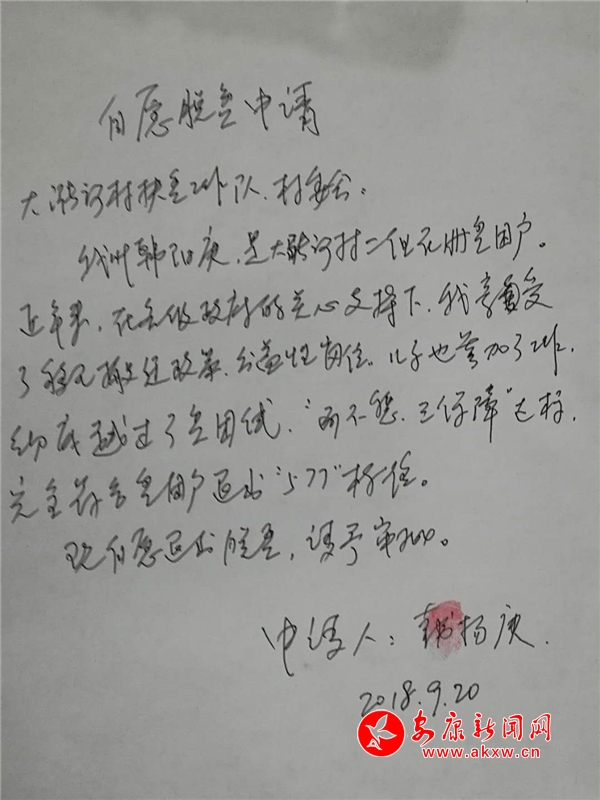 自愿脱贫申请
大河村扶贫工作队、村委会：
我叫韩阳庚，是大河村二组在册贫困户。
近年来，在各级政府的关心支持下，我享受
了移民搬迁政策、公益性岗位。儿子也参加了工作，
越过了贫困线，"两不愁、三保障"达标，
完全符合贫困户退出"577"标准。
现自愿退出脱贫，请予审批。
申请人：韩扬庚.
2018.9.20
安康新闻网
www.akxw.cn